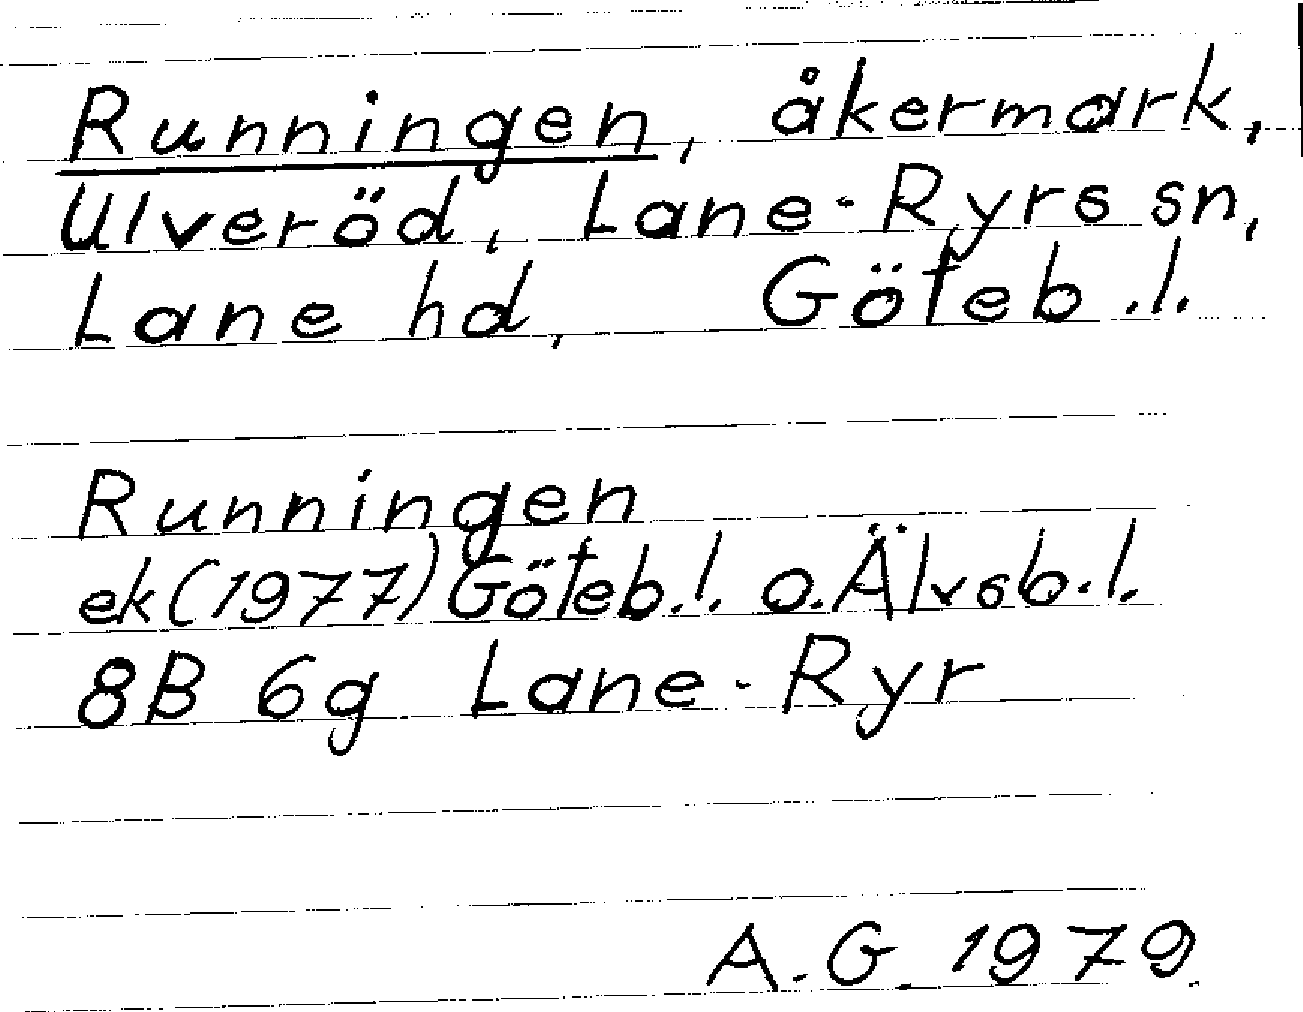 Runningen, åkermark,
Ulveröd, Lane-Ryrs sn,
Lane hd, Göteb.l.
Runningen
ek(1977) Göteb.l. o.Älvsb.l.
8B 6g Lane-Ryr
A.G. 1979.